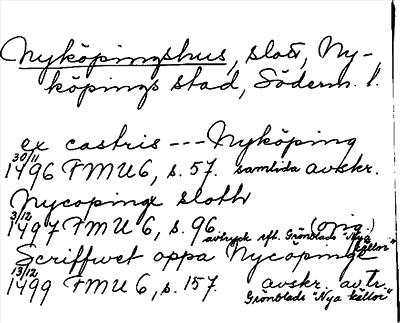 Nyköpingshus, slott, Ny-
köpings stad, Söderm. l.
ex castris --- Nyköping
30/11
1496 FMU 6, s. 57. samtida avskr.
Nycopinx sloth
3/12
1497 FMU 6, s. 96 (orig.)
avtryck eft. Grönblads "Nya
källor"
Scriffwet oppa Nycopinge
13/12
1499 FMU 6, s. 157. avskr. av tr.
Grönblads "Nya källor"